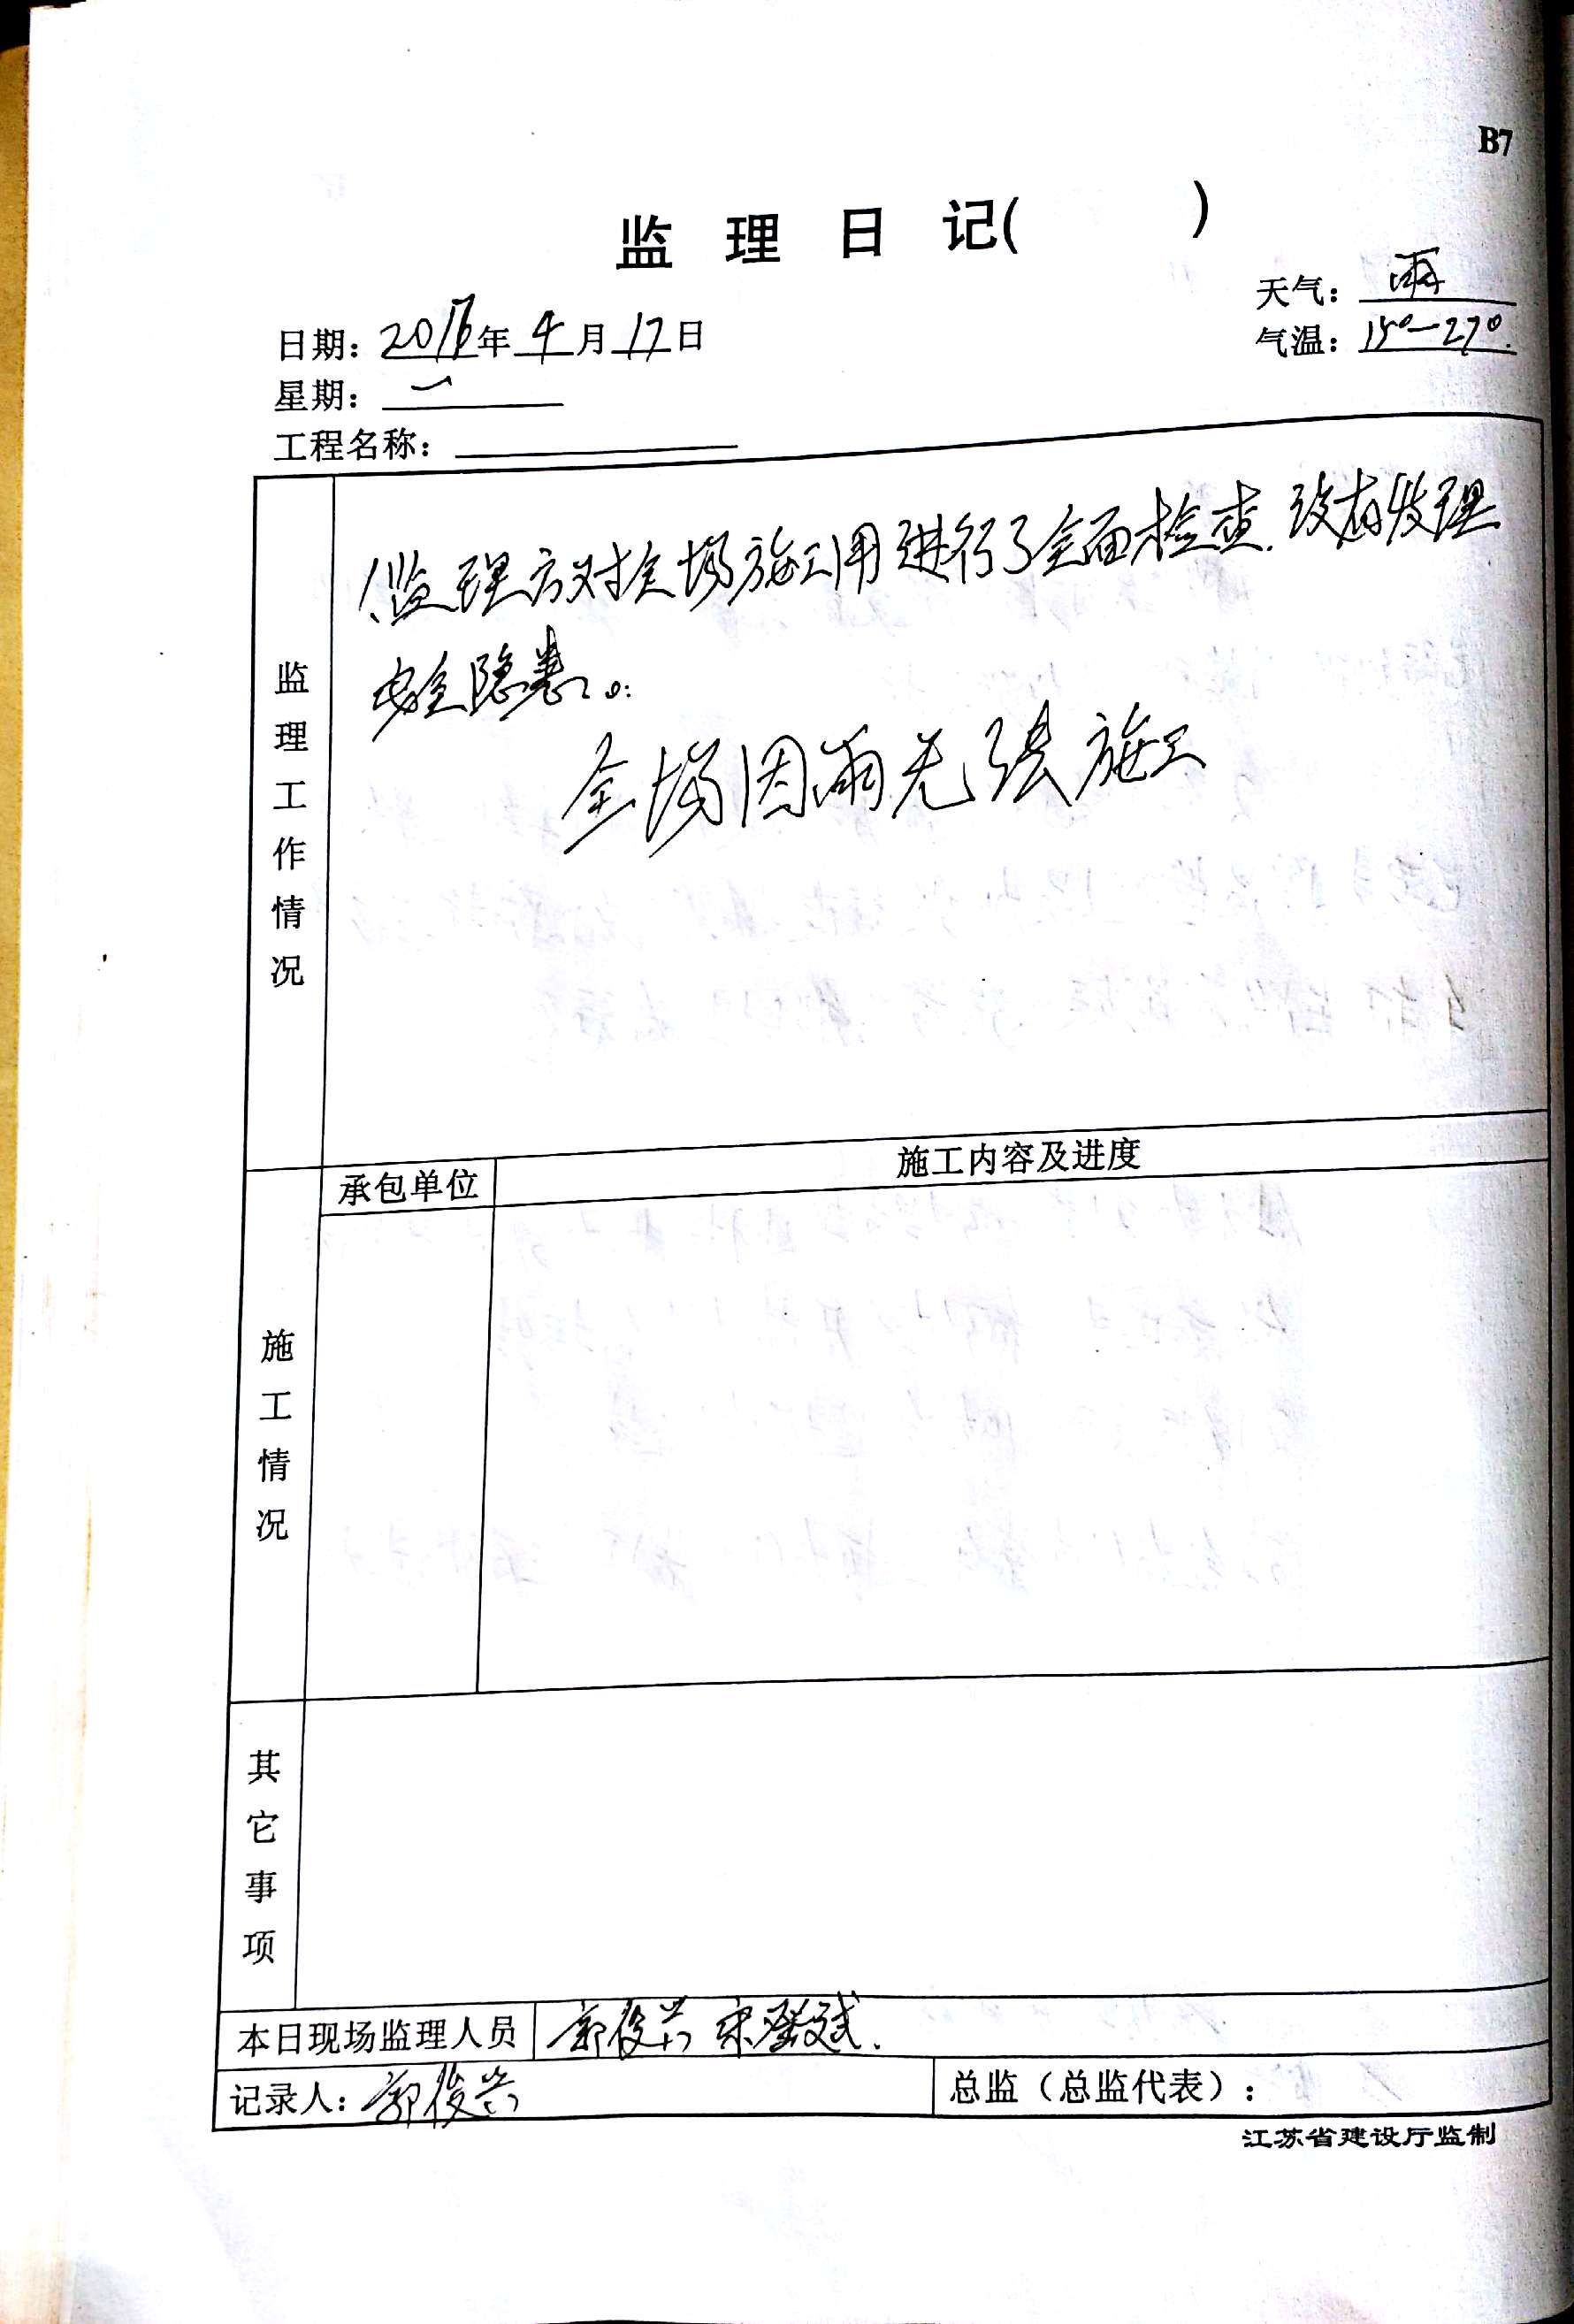 B7
监理日记( )
天气：雨
日期：2017年4月17日
气温：15°—27°.
星期：一
工程名称：
监理工作情况
1.监理方对全场施工用进行了全面检查.没有发现
安全隐患。
全场因雨无法施工
承包单位
施工内容及进度
施工情况
其它事项
本日现场监理人员 郭俊兴 宋 斌.
记录人：郭俊兴
总监（总监代表）：
江苏省建设厅监制